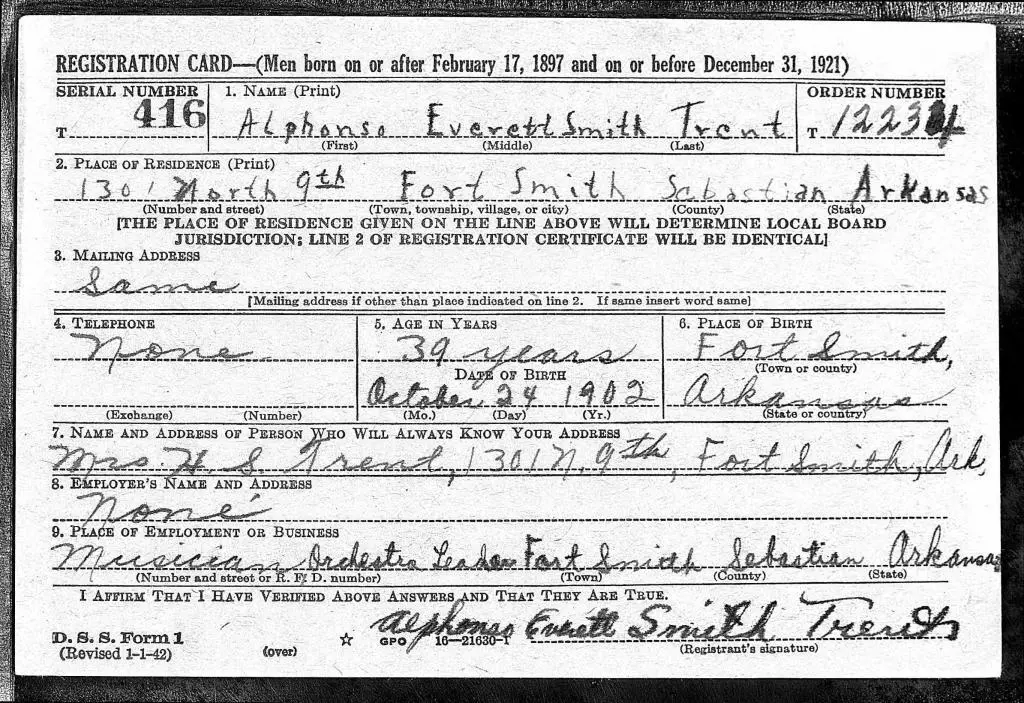 REGISTRATION CARD—(Men born on or after February 17, 1897 and on or before December 31, 1921)
SERIAL NUMBER 1. NAME (Print) ORDER NUMBER
T 416 Alphonso Everett Smith Trent T
(First) (Middle) (Last)
2. PLACE OF RESIDENCE (Print)
1301 North 9th Fort Smith Sebastian Arkansas
(Number and street) (Town, township, village, or city) (County) (State)
[THE PLACE OF RESIDENCE GIVEN ON THE LINE ABOVE WILL DETERMINE LOCAL BOARD
JURISDICTION; LINE 2 OF REGISTRATION CERTIFICATE WILL BE IDENTICAL]
3. MAILING ADDRESS
Same
[Mailing address if other than place indicated on line 2. If same insert word same]
4. TELEPHONE 5. AGE IN YEARS 6. PLACE OF BIRTH
None 39 years Fort Smith,
DATE OF BIRTH (Town or county)
October 24 1902 Arkansas
(Exchange) (Number) (Mo.) (Day) (Yr.) (State or country)
7. NAME AND ADDRESS OF PERSON WHO WILL ALWAYS KNOW YOUR ADDRESS
Mrs. H. S Trent, 1301 N. 9th, Fort Smith, Ark,
8. EMPLOYER'S NAME AND ADDRESS
None
9. PLACE OF EMPLOYMENT OR BUSINESS
Musician Orchestra Leader Fort Smith Sebastian Arkansas
(Number and street or R. F. D. number) (Town) (County) (State)
I AFFIRM THAT I HAVE VERIFIED ABOVE ANSWERS AND THAT THEY ARE TRUE.
Alphonso Everett Smith Trent
D. S. S. Form 1 GPO 16—21630-1
(Revised 1-1-42) (over) (Registrant's signature)